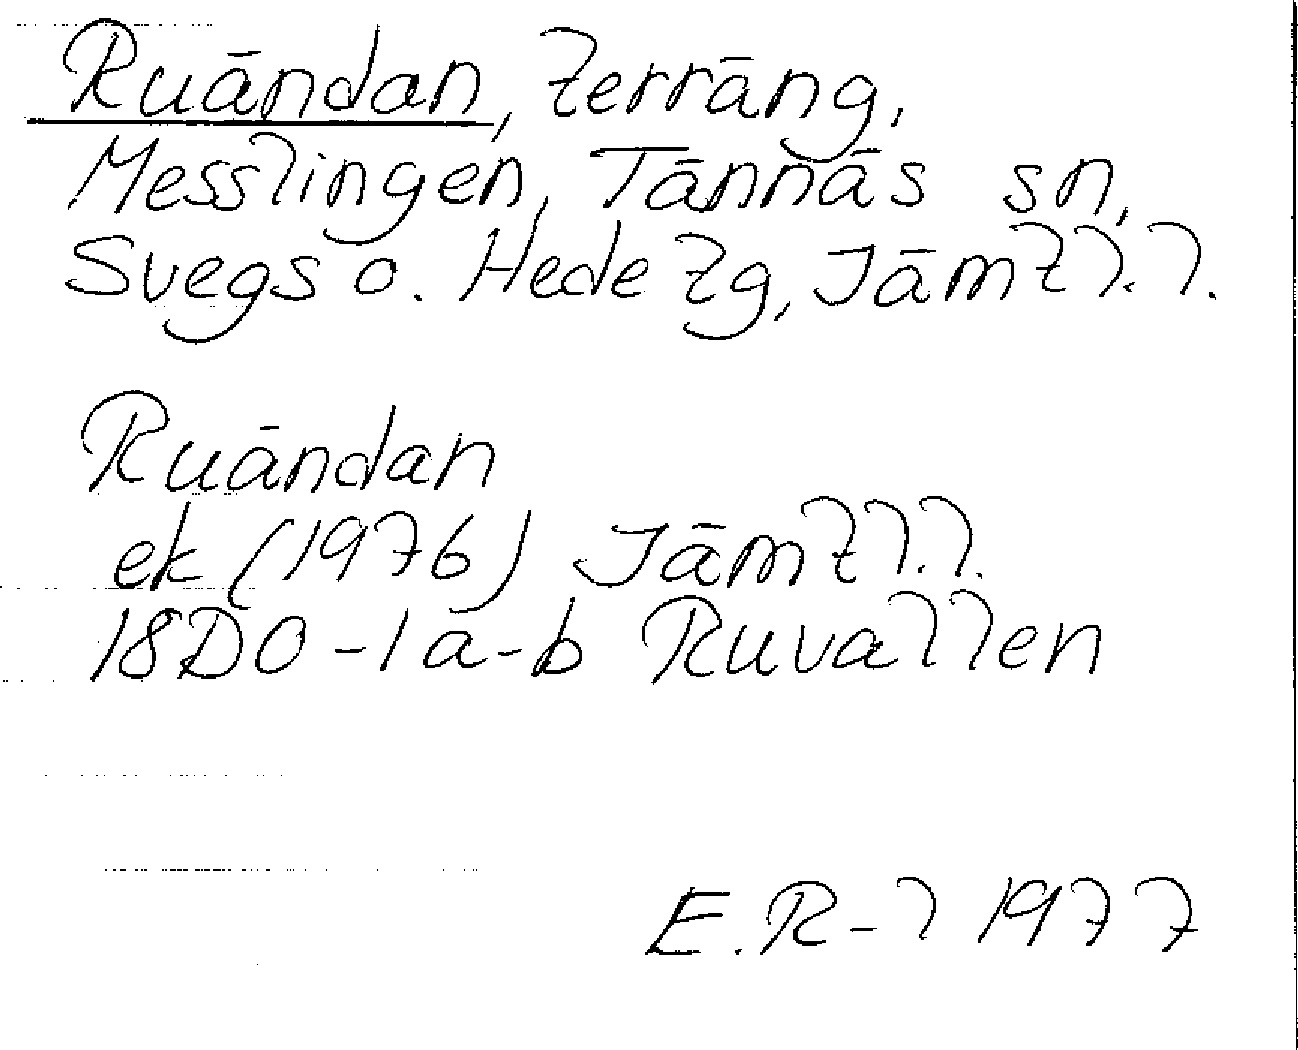 Ruändan, terräng,
Messlingen, Tännäs sn,
Svegs o. Hede tg, Jämtl.l.
Ruändan
ek (1976) Jämtl.l.
18D0-1a-b Ruvallen
E.R-l 1977